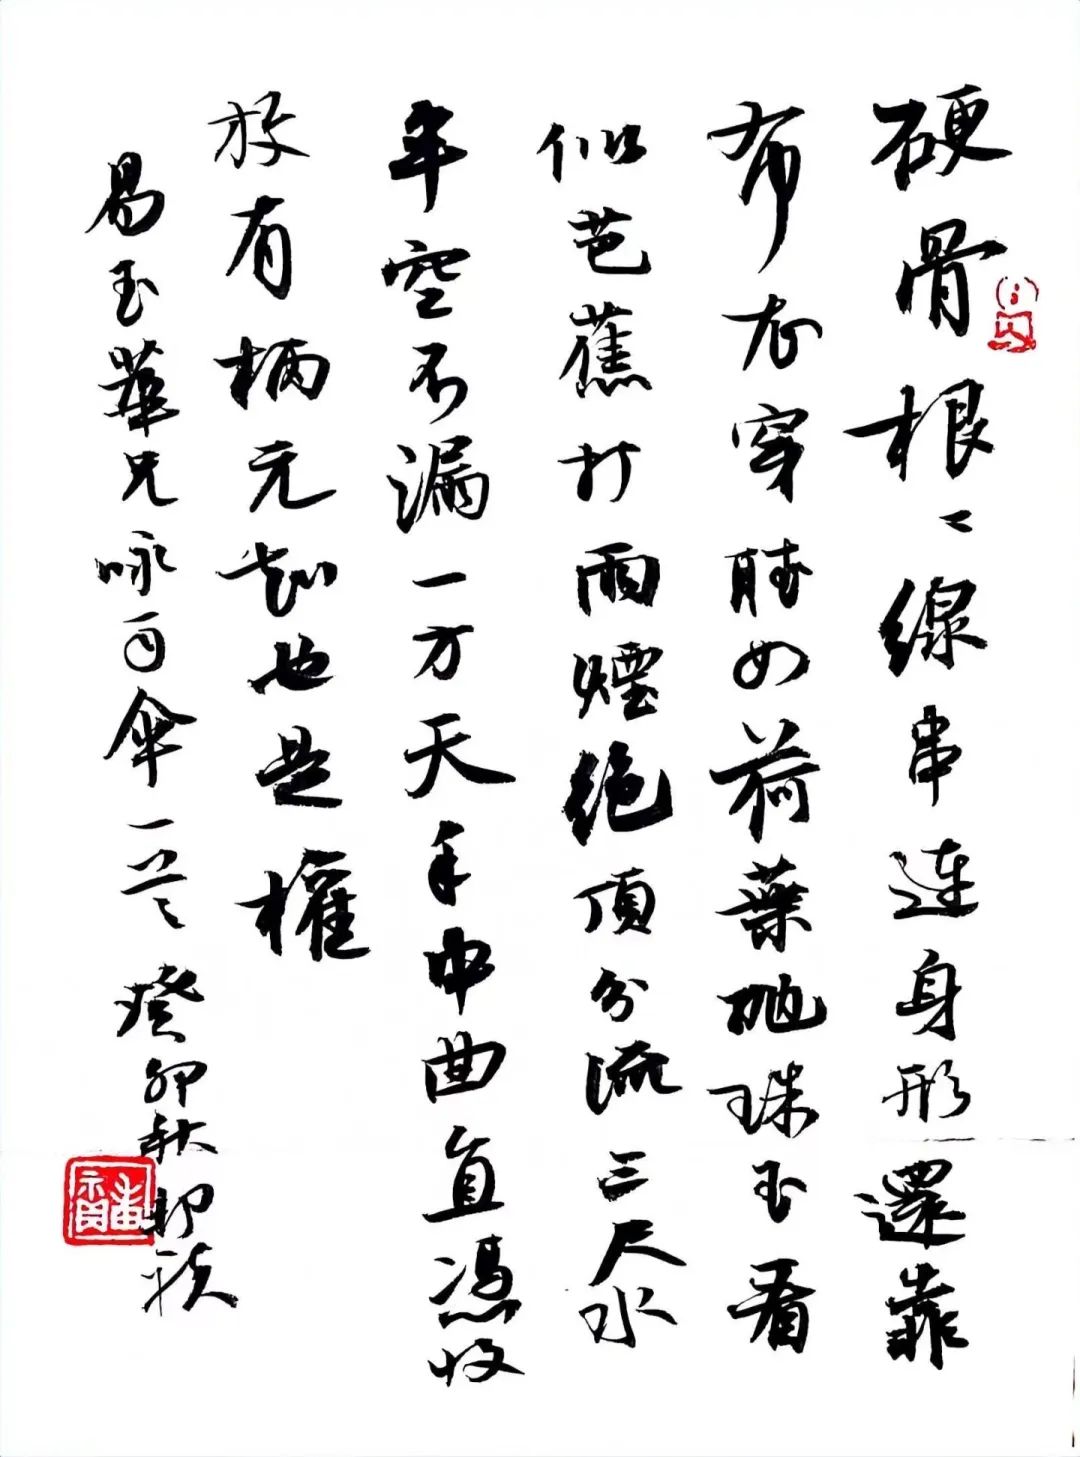 硬骨根〻線串連身形還靠
布衣穿晴如荷葉抛珠玉看
似芭蕉打雨煙絕頂分流三尺水
半空不漏一方天手中曲直憑收
放有柄元知也是權
易玉華兄咏雨傘一首癸卯秋